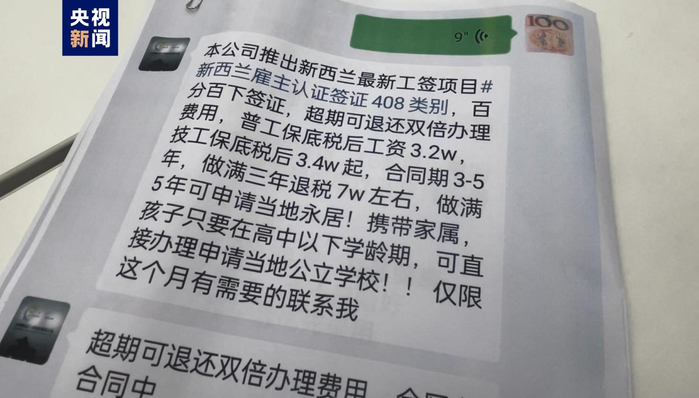 央视
新闻
100
9"
本公司推出新西兰最新工签项目#
新西兰雇主认证签证408类别，百
分百下签证，超期可退还双倍办理
费用，普工保底税后工资3.2w，
技工保底税后3.4w起，合同期3-5
年，做满三年退税7w左右，做满
5年可申请当地永居！携带家属，
孩子只要在高中以下学龄期，可直
接办理申请当地公立学校！！仅限
这个月有需要的联系我
超期可退还双倍办理费用
合同中